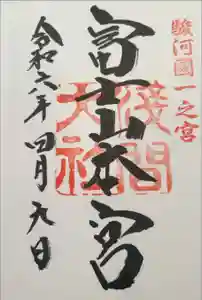 駿河國一之宮
富士山本宮
淺間
大社
令和六年四月九日